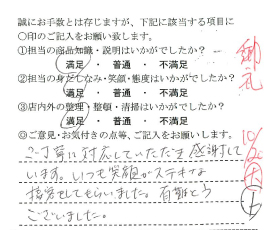 誠にお手数とは存じますが、下記に該当する項目に
○印のご記入をお願い致します。
①担当の商品知識・説明はいかがでしたか?
満足 ・ 普通 ・ 不満足
②担当の身だしなみ・笑顔・態度はいかがでしたか?
満足 ・ 普通 ・ 不満足
③店内外の整理・整頓・清掃はいかがでしたか?
満足 ・ 普通 ・ 不満足
◎ご意見・お気付きの点等、ご記入をお願いします。
ご丁寧に対応していただき感謝して
います。いつも笑顔がステキな
接客をしてもらいました。有難とう
ございました。
御礼
10/26